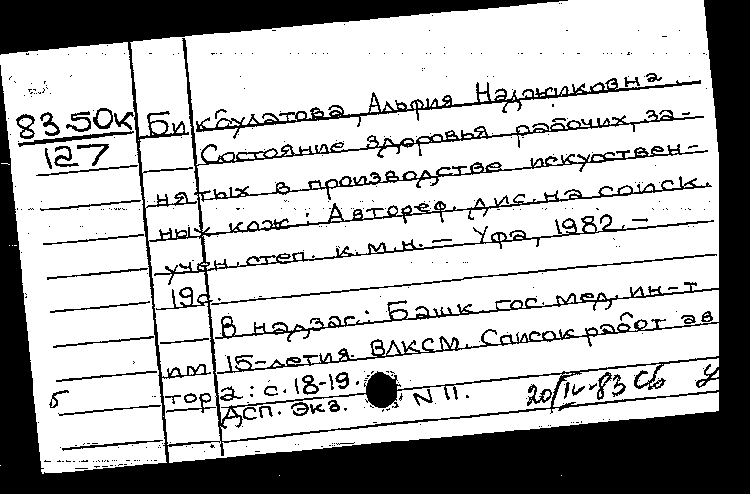 83.50к Бикбулатова, Альфия Наджиковна.
127 Состояние здоровья рабочих, за-
нятых в производстве искусствен-
ных кож: Автореф. дис. на соиск.
учен. степ. к.м.н. — Уфа, 1982. —
19с.
В надзаг.: Башк. гос. мед. ин-т
им 15-летия ВЛКСМ. Список работ ав
тора: с. 18-19.
б ДСП. Экз. N 11. 20/IV-83